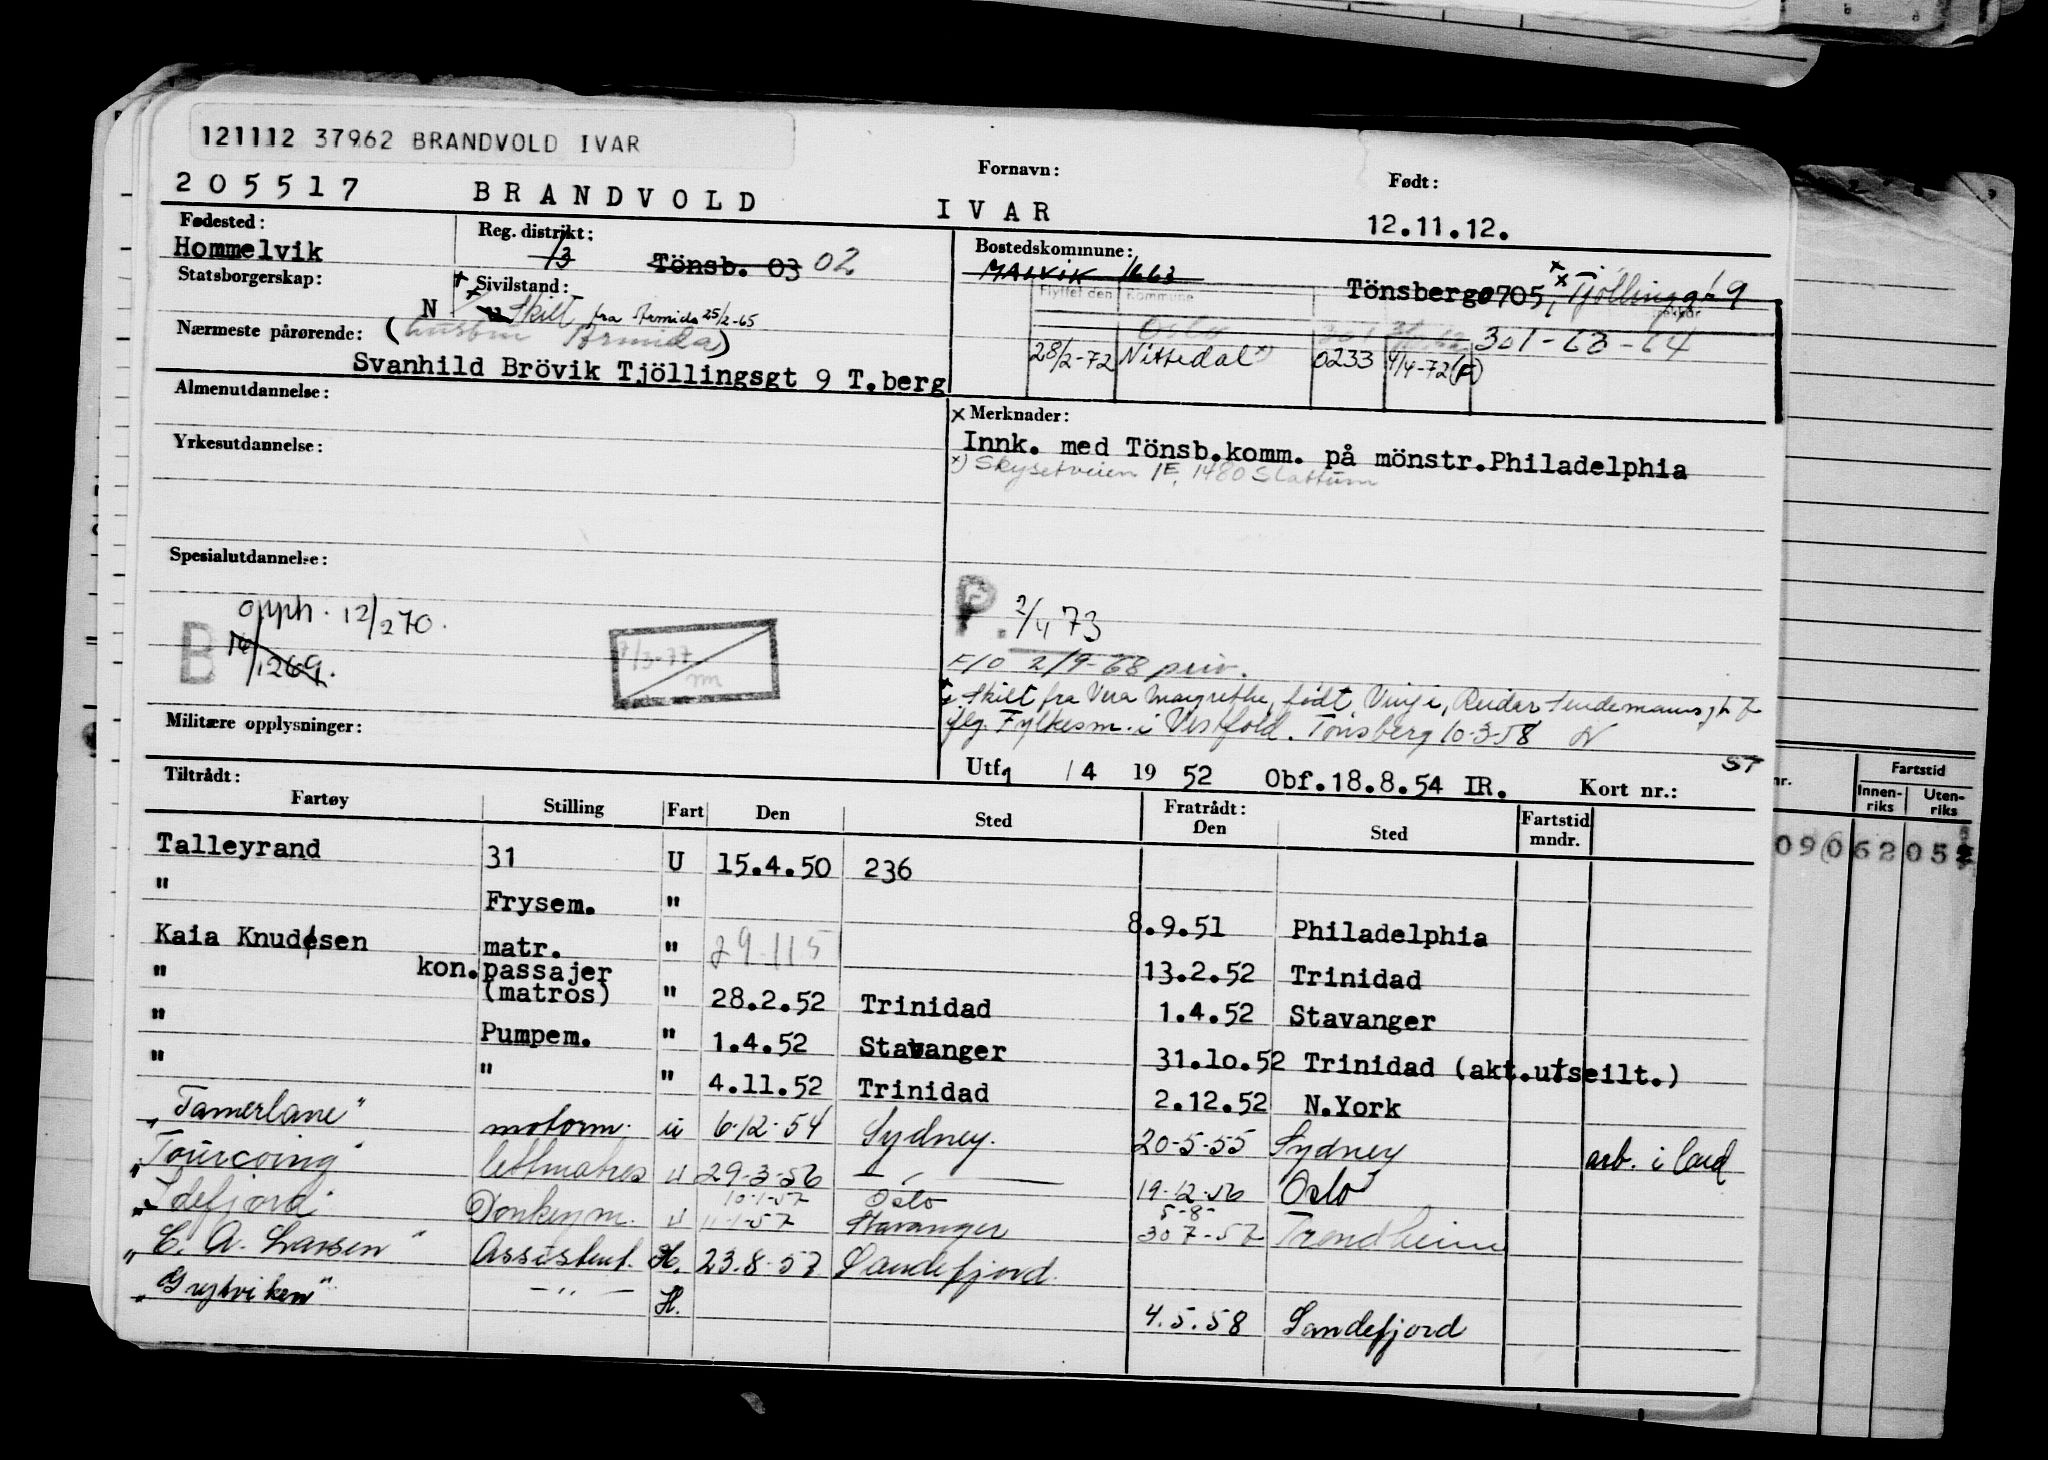 121112 37962 BRANDVOLD IVAR
205517 BRANDVOLD IVAR 12.11.12.
Fornavn: Født:
Fødested: Hommelvik
Reg. distrikt: 13 Tönsb. 03 02
Bostedskommune: MALVIK 1663 Tönsberg 0705, Tjöllinggt 9
Flyttet den Kommune
Statsborgerskap: N
Sivilstand: Skilt fra Armida 25/2-65
Nærmeste pårørende: (hustru Armida)
Oslo 301 301-63-64
28/2-72 Nittedal x) 0233 4/4-72 (F)
Svanhild Brövik Tjöllingsgt 9 T.berg
Almenutdannelse:
x Merknader:
Innk. med Tönsb.komm. på mönstr.Philadelphia
x) Skysetveien 1E, 1480 Slattum
Yrkesutdannelse:
Spesialutdannelse:
opph. 12/2 70.
B 12/12 69.
7/3-77
P. 2/4 73
F/O 2/9-68 priv.
Skilt fra Vera Margrethe, født Vinje, Reidar Sendemannsgt 7
flg. Fylkesm. i Vestfold. Tönsberg 10-3-58
Militære opplysninger:
Utf. 1/4 1952 Obf.18.8.54 IR. Kort nr.: ST
Tiltrådt: Fratrådt:
Fartøy Stilling Fart Den Sted Den Sted Fartstid mndr.
Talleyrand 31 U 15.4.50 236
" Frysem. " 8.9.51 Philadelphia
Kaia Knudesen matr. " 29.11.5 13.2.52 Trinidad
" kon. passajer (matros) " 28.2.52 Trinidad 1.4.52 Stavanger
" Pumpem. " 1.4.52 Stavanger 31.10.52 Trinidad (akt.utseilt.)
" " " 4.11.52 Trinidad 2.12.52 N.York
"Tamerlane" motorm. u 6.12.54 Sydney. 20-5-55 Sydney arb. i land
"Tourcoing" lettmatros u 29-3-56 — " — 19.12.56 Oslo
"Idefjord" Donkeym. u 10-1-57 11-1-57 Oslo Stavanger 5-8- 30 7-57 Trondheim
"C. A. Larsen" Assistent. H. 23.8.57 Sandefjord.
"Grytviken" — " — H. 4.5.58 Sandefjord
nr. Fartstid
Innen-riks Uten-riks
090 62 05